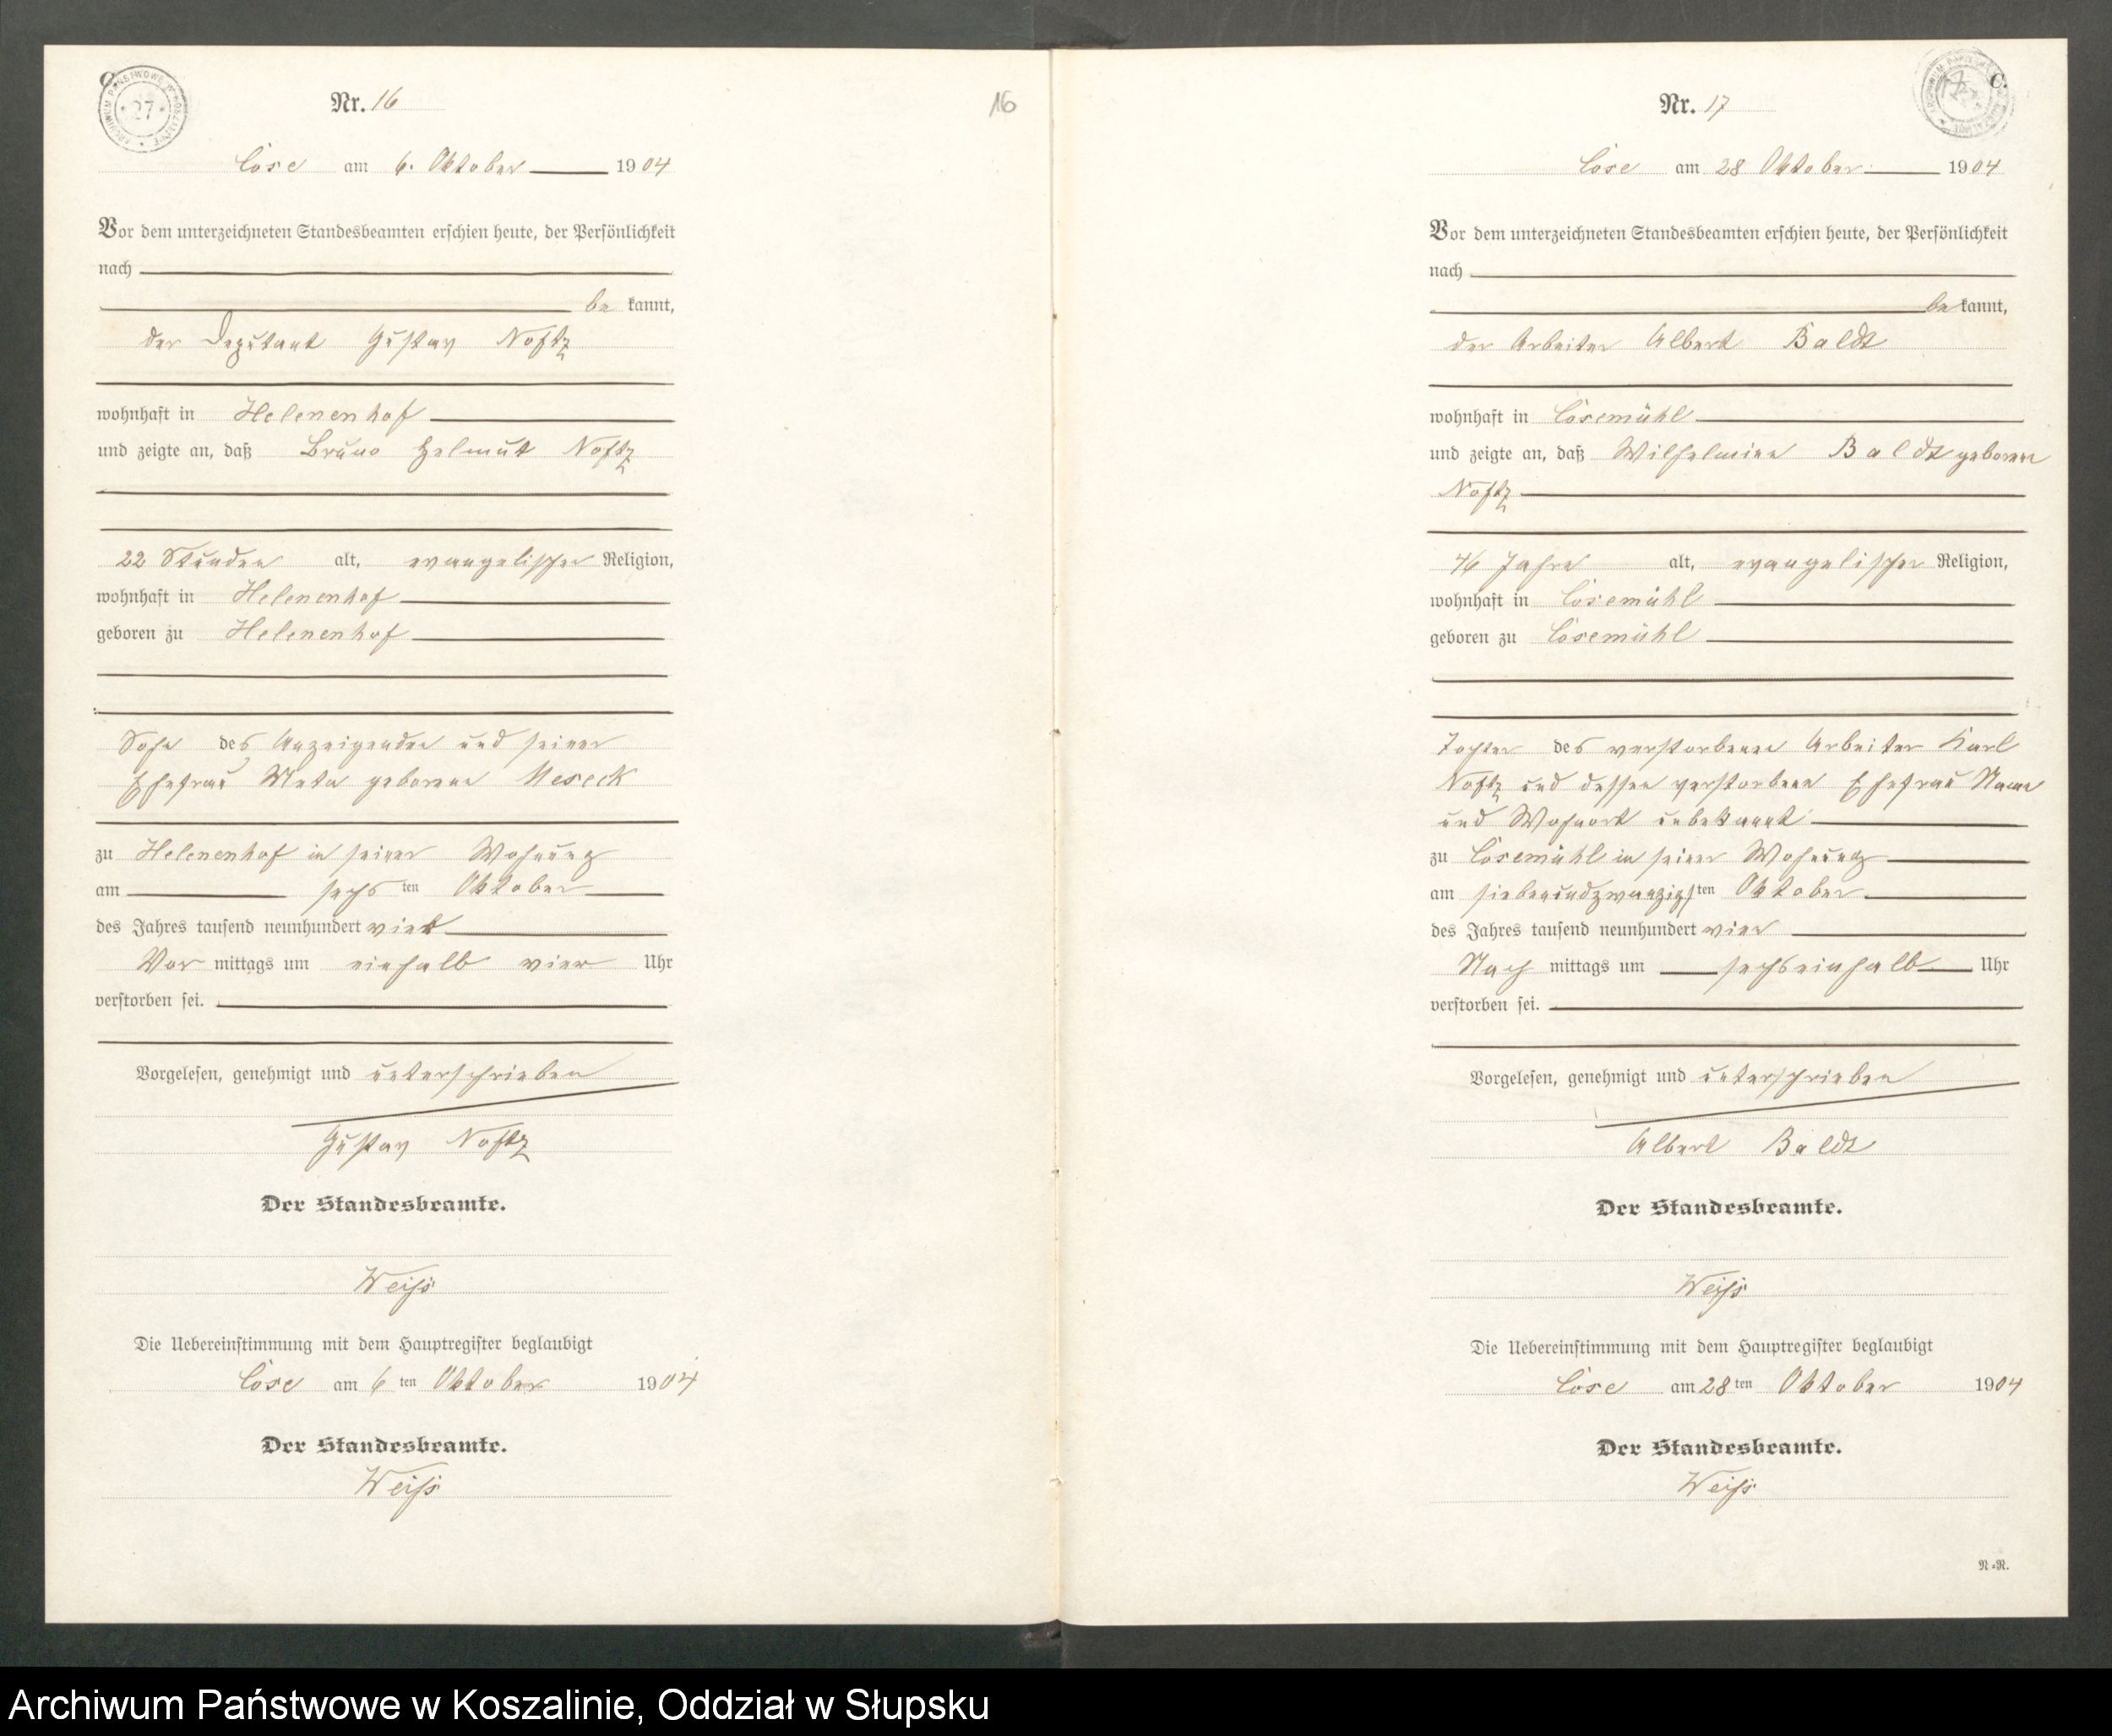 Nr. 16
Cöse am 6. Oktober 1904
Vor dem unterzeichneten Standesbeamten erschien heute, der Persönlichkeit
nach
be kannt,
der Deputant Gustav Noffz
wohnhaft in Helenenhof
und zeigte an, daß Bruno Helmut Noffz
22 Stunden alt, evangelischer Religion,
wohnhaft in Helenenhof
geboren zu Helenenhof
Sohn des Anzeigenden und seiner
Ehefrau Meta geborene Meseck
zu Helenenhof in seiner Wohnung
am sechsten Oktober
des Jahres tausend neunhundert vier
Vor mittags um einhalb vier Uhr
verstorben sei.
Vorgelesen, genehmigt und unterschrieben
Gustav Noffz
Der Standesbeamte.
Weiss
Die Uebereinstimmung mit dem Hauptregister beglaubigt
Cöse am 6 ten Oktober 1904
Der Standesbeamte.
Weiss
16
C.
Nr. 17
Cöse am 28 Oktober 1904
Vor dem unterzeichneten Standesbeamten erschien heute, der Persönlichkeit
nach
be kannt,
der Arbeiter Albert Baldt
wohnhaft in Cösemühl
und zeigte an, daß Wilhelmine Baldt geborene
Noffz
46 Jahre alt, evangelischer Religion,
wohnhaft in Cösemühl
geboren zu Cösemühl
Tochter des verstorbenen Arbeiter Karl
Noffz und dessen verstorbene Ehefrau Name
und Wohnort unbekannt
zu Cösemühl in seiner Wohnung
am siebenundzwanzigsten Oktober
des Jahres tausend neunhundert vier
Nach mittags um sechseinhalb Uhr
verstorben sei.
Vorgelesen, genehmigt und unterschrieben
Albert Baldt
Der Standesbeamte.
Weiss
Die Uebereinstimmung mit dem Hauptregister beglaubigt
Cöse am 28 ten Oktober 1904
Der Standesbeamte.
Weiss
N=R.
Archiwum Państwowe w Koszalinie, Oddział w Słupsku